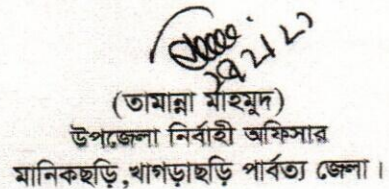 (তামান্না মাহমুদ)
উপজেলা নির্বাহী অফিসার
মানিকছড়ি,খাগড়াছড়ি পার্বত্য জেলা।